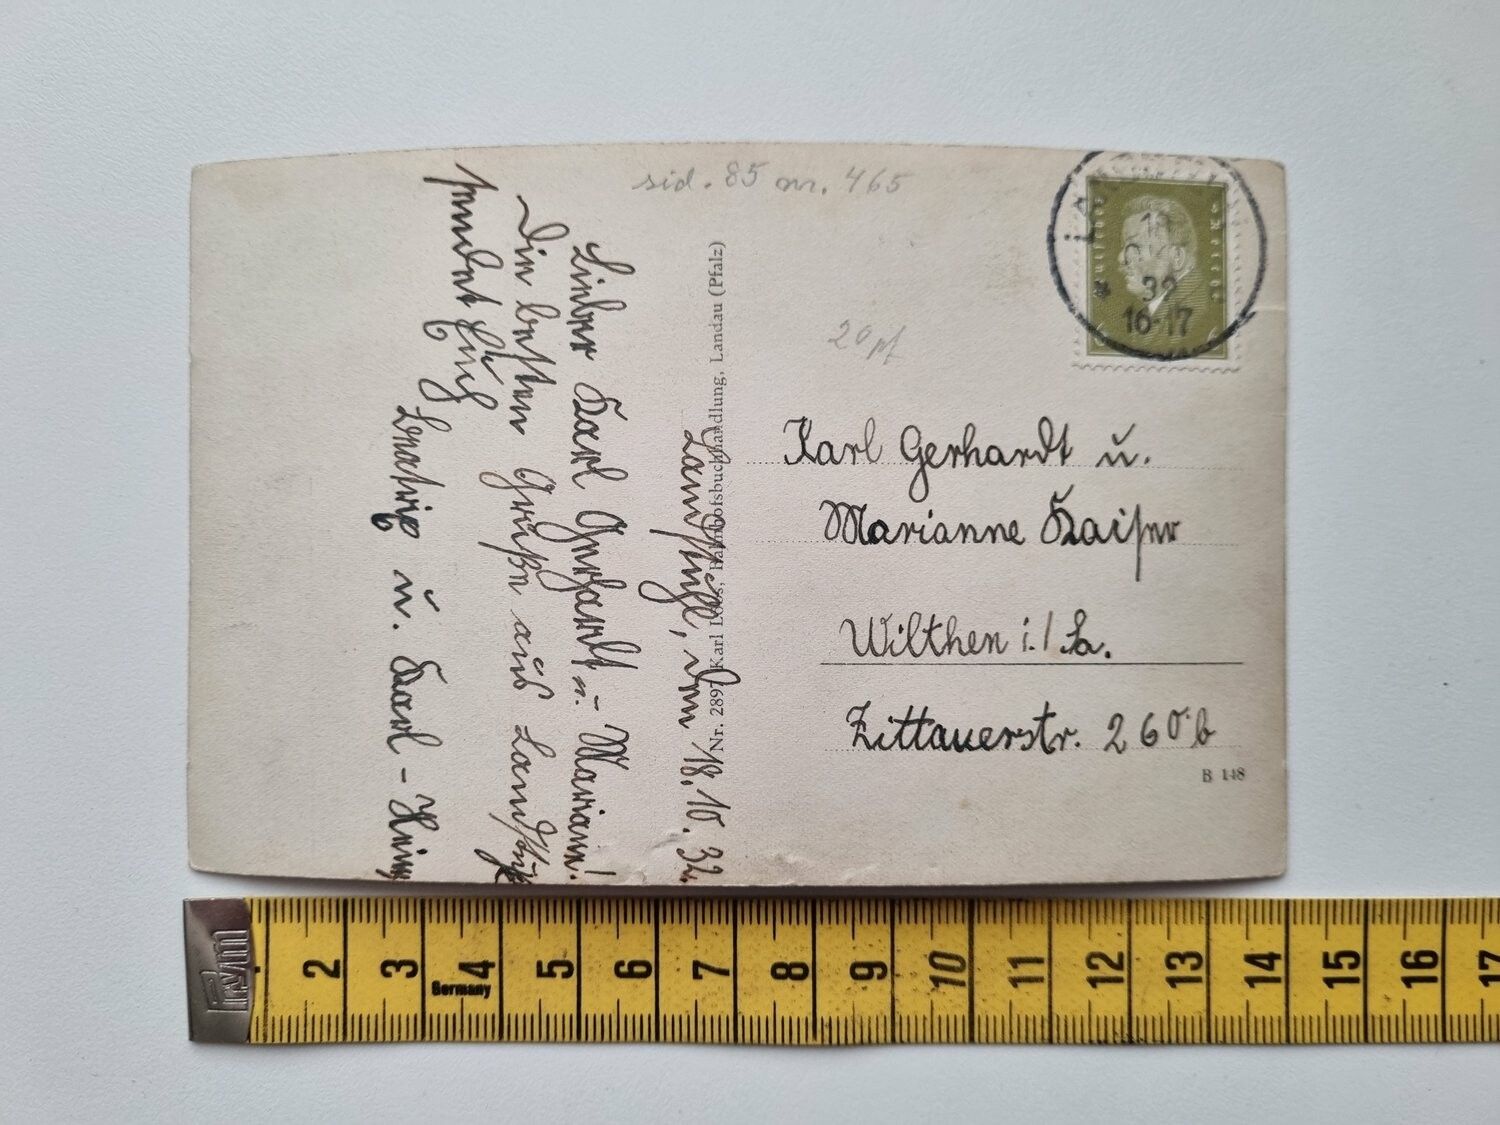 sid. 85 nr. 465
20 pf
Deutsches Reich
18
32
16-17
Landstuhl, den 18.10.32.
Lieber Karl Gerhardt u. Mariann!
Die besten Grüße aus Landstuhl
sendet Euch
Ludwig u. Karl-Heinz
Nr. 2897 Karl Loos, Bahnhofsbuchhandlung, Landau (Pfalz)
Karl Gerhardt u.
Marianne Kaiser
Wilthen i./Sa.
Zittauerstr. 260 b
B 148
Prym
2 3 4 5 6 7 8 9 10 11 12 13 14 15 16 17
Germany